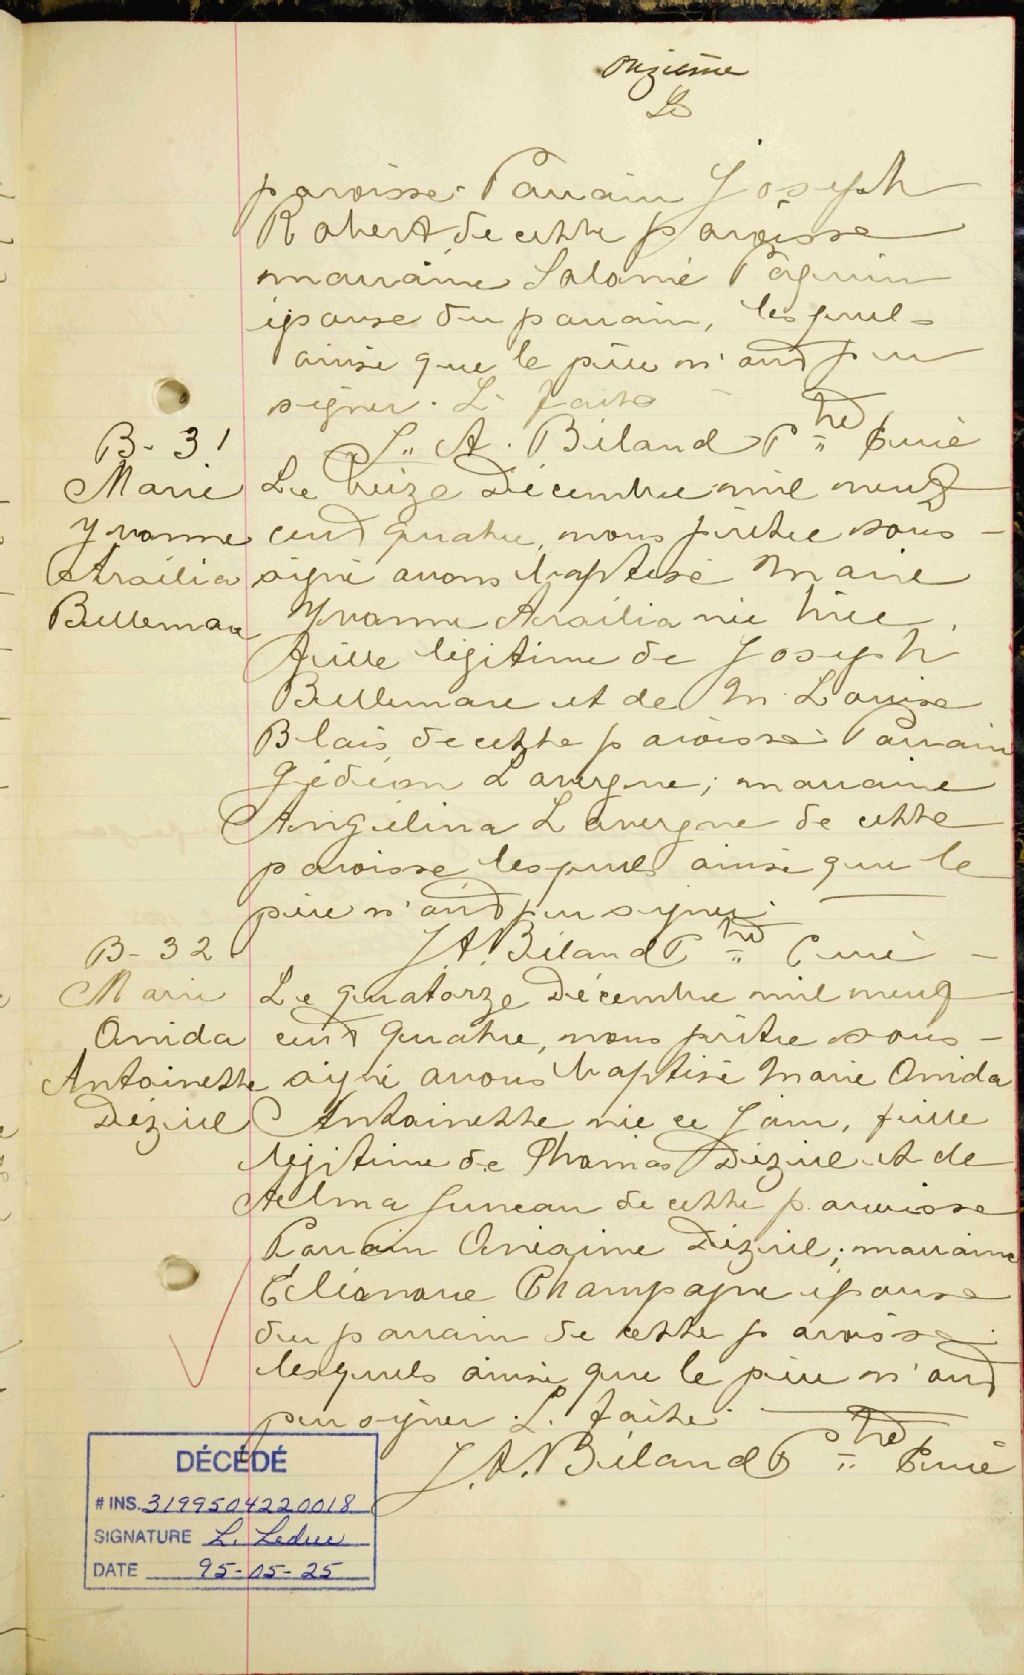 onzième
paroisse. Parrain Joseph
Robert de cette paroisse
marraine Salomé Paquin
épouse du parrain, lesquels
ainsi que le père n'ont pu
signer. L. faite
J. A. Béland Ptre Curé
B-31
Marie
Yvonne
Arsilia
Bellemare
Le treize Décembre mil neuf
cent quatre, nous prêtre sous-
signé avons baptisé Marie
Yvonne Arsilia née hier,
fille légitime de Joseph
Bellemare et de M. Louise
Blais de cette paroisse. Parrain
Gédéon Lavergne; marraine
Angélina Lavergne de cette
paroisse lesquels ainsi que le
père n'ont pu signer.
J. A. Béland Ptre Curé
B-32
Marie
Anida
Antoinette
Déziel
Le quatorze Décembre mil neuf
cent quatre, nous prêtre sous-
signé avons baptisé Marie Anida
Antoinette née ce jour, fille
légitime de Thomas Déziel et de
Alma Juneau de cette paroisse
Parrain Onésime Déziel; marraine
Eléonore Champagne épouse
du parrain de cette paroisse.
lesquels ainsi que le père n'ont
pu signer. L. faite.
J. A. Béland Ptre Curé
DÉCÉDÉ
# INS. 3199504220018
SIGNATURE L. Leduc
DATE 95-05-25